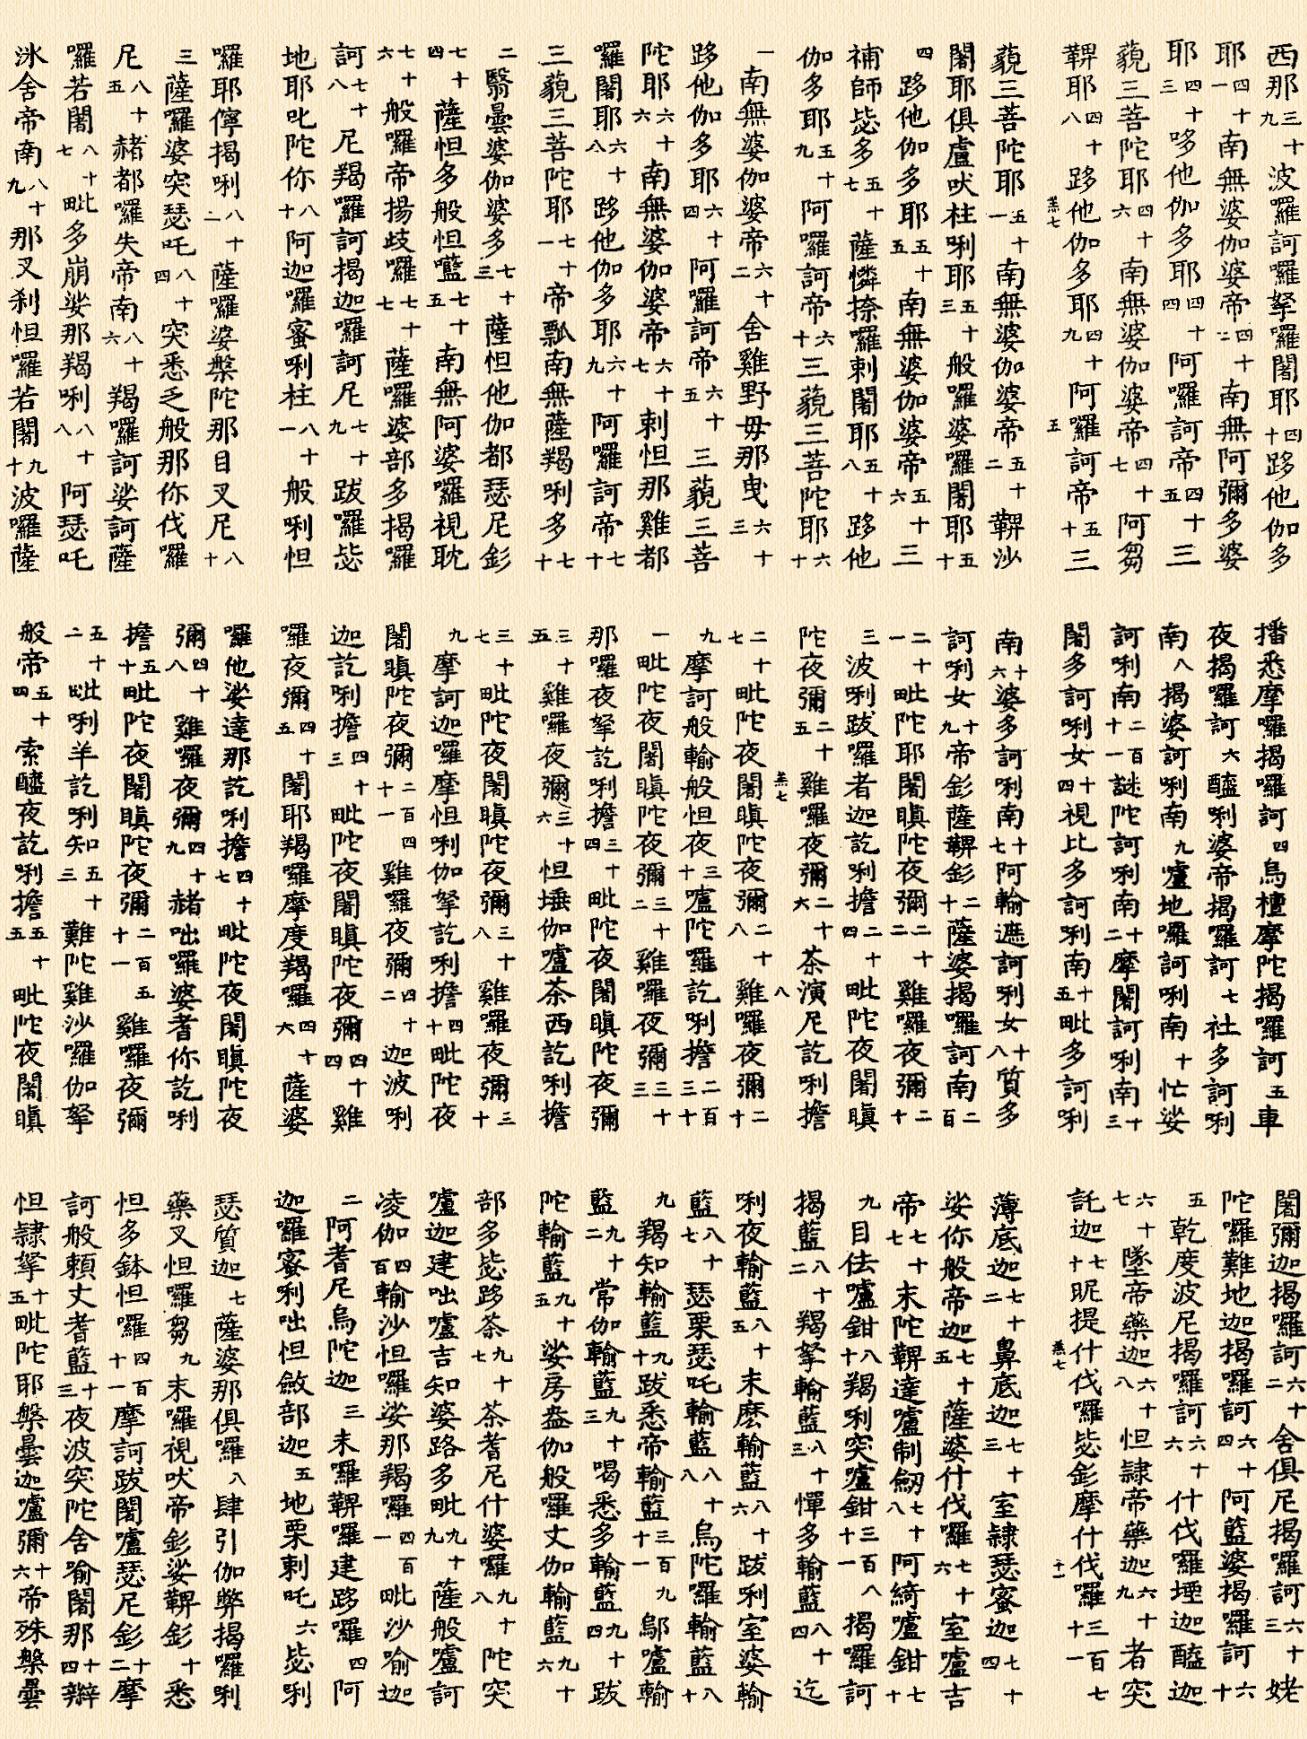 西那三十九波羅訶羅拏羅闍耶四十跢他伽多
耶四十一南無婆伽婆帝四十二南無阿彌多婆
耶四十三哆他伽多耶四十四阿囉訶帝四十五三
藐三菩陀耶四十六南無婆伽婆帝四十七阿芻
鞞耶四十八跢他伽多耶四十九阿囉訶帝五十三
羔七 五
藐三菩陀耶五十一南無婆伽婆帝五十二鞞沙
闍耶俱盧吠柱唎耶五十三般囉婆囉闍耶五十
四跢他伽多耶五十五南無婆伽婆帝五十六三
補師毖多五十七薩憐捺囉剌闍耶五十八跢他
伽多耶五十九阿囉訶帝六十三藐三菩陀耶六十
一南無婆伽婆帝六十二舍雞野毋那曳六十三
跢他伽多耶六十四阿囉訶帝六十五三藐三菩
陀耶六十六南無婆伽婆帝六十七剌怛那雞都
囉闍耶六十八跢他伽多耶六十九阿囉訶帝七十
三藐三菩陀耶七十一帝瓢南無薩羯唎多七十
二翳曇婆伽婆多七十三薩怛他伽都瑟尼釤
七十四薩怛多般怛嚂七十五南無阿婆囉視耽
七十六般囉帝揚歧囉七十七薩囉婆部多揭囉
訶七十八尼羯囉訶揭迦囉訶尼七十九跋囉毖
地耶叱陀你八十阿迦囉蜜唎柱八十一般唎怛
囉耶儜揭唎八十二薩囉婆槃陀那目叉尼八十
三薩囉婆突瑟吒八十四突悉乏般那你伐囉
尼八十五赭都囉失帝南八十六羯囉訶娑訶薩
囉若闍八十七毗多崩娑那羯唎八十八阿瑟吒
冰舍帝南八十九那叉剎怛囉若闍九十波囉薩
播悉摩囉揭囉訶四烏檀摩陀揭囉訶五車
夜揭囉訶六醯唎婆帝揭囉訶七社多訶唎
南八揭婆訶唎南九嚧地囉訶唎南十忙娑
訶唎南二百十一謎陀訶唎南十二摩闍訶唎南十三
闍多訶唎女十四視比多訶唎南十五毗多訶唎
南十六婆多訶唎南十七阿輸遮訶唎女十八質多
訶唎女十九帝釤薩鞞釤二十薩婆揭囉訶南二百
二十一毗陀耶闍瞋陀夜彌二十二雞囉夜彌二十
三波唎跋囉者迦訖唎擔二十四毗陀夜闍瞋
陀夜彌二十五雞囉夜彌二十六茶演尼訖唎擔
羔七 八
二十七毗陀夜闍瞋陀夜彌二十八雞囉夜彌二十
九摩訶般輸般怛夜三十嚧陀囉訖唎擔二百三十
一毗陀夜闍瞋陀夜彌三十二雞囉夜彌三十三
那囉夜拏訖唎擔三十四毗陀夜闍瞋陀夜彌
三十五雞囉夜彌三十六怛埵伽嚧茶西訖唎擔
三十七毗陀夜闍瞋陀夜彌三十八雞囉夜彌三十
九摩訶迦囉摩怛唎伽拏訖唎擔四十毗陀夜
闍瞋陀夜彌二百四十一雞囉夜彌四十二迦波唎
迦訖唎擔四十三毗陀夜闍瞋陀夜彌四十四雞
囉夜彌四十五闍耶羯囉摩度羯囉四十六薩婆
囉他娑達那訖唎擔四十七毗陀夜闍瞋陀夜
彌四十八雞囉夜彌四十九赭咄囉婆耆你訖唎
擔五十毗陀夜闍瞋陀夜彌二百五十一雞囉夜彌
五十二毗唎羊訖唎知五十三難陀雞沙囉伽拏
般帝五十四索醯夜訖唎擔五十五毗陀夜闍瞋
闍彌迦揭囉訶六十二舍俱尼揭囉訶六十三姥
陀囉難地迦揭囉訶六十四阿藍婆揭囉訶六十
五乾度波尼揭囉訶六十六什伐囉堙迦醯迦
六十七墜帝藥迦六十八怛隸帝藥迦六十九者突
託迦七十昵提什伐囉毖釤摩什伐囉三百七十一
羔七 十一
薄底迦七十二鼻底迦七十三室隸瑟蜜迦七十四
娑你般帝迦七十五薩婆什伐囉七十六室嚧吉
帝七十七末陀鞞達嚧制劒七十八阿綺嚧鉗七十
九目佉嚧鉗八十羯唎突嚧鉗三百八十一揭囉訶
揭藍八十二羯拏輸藍八十三憚多輸藍八十四迄
唎夜輸藍八十五末麽輸藍八十六跋唎室婆輸
藍八十七瑟栗瑟吒輸藍八十八烏陀囉輸藍八十
九羯知輸藍九十跋悉帝輸藍三百九十一鄔嚧輸
藍九十二常伽輸藍九十三喝悉多輸藍九十四跋
陀輸藍九十五娑房盎伽般囉丈伽輸藍九十六
部多毖跢茶九十七茶耆尼什婆囉九十八陀突
嚧迦建咄嚧吉知婆路多毗九十九薩般嚧訶
凌伽四百輸沙怛囉娑那羯囉四百一毗沙喻迦
二阿耆尼烏陀迦三末囉鞞囉建跢囉四阿
迦囉蜜唎咄怛斂部迦五地栗剌吒六毖唎
瑟質迦七薩婆那俱囉八肆引伽弊揭囉唎
藥叉怛囉芻九末囉視吠帝釤娑鞞釤十悉
怛多鉢怛囉四百十一摩訶跋闍嚧瑟尼釤十二摩
訶般賴丈耆藍十三夜波突陀舍喻闍那十四辮
怛隸拏十五毗陀耶槃曇迦嚧彌十六帝殊槃曇